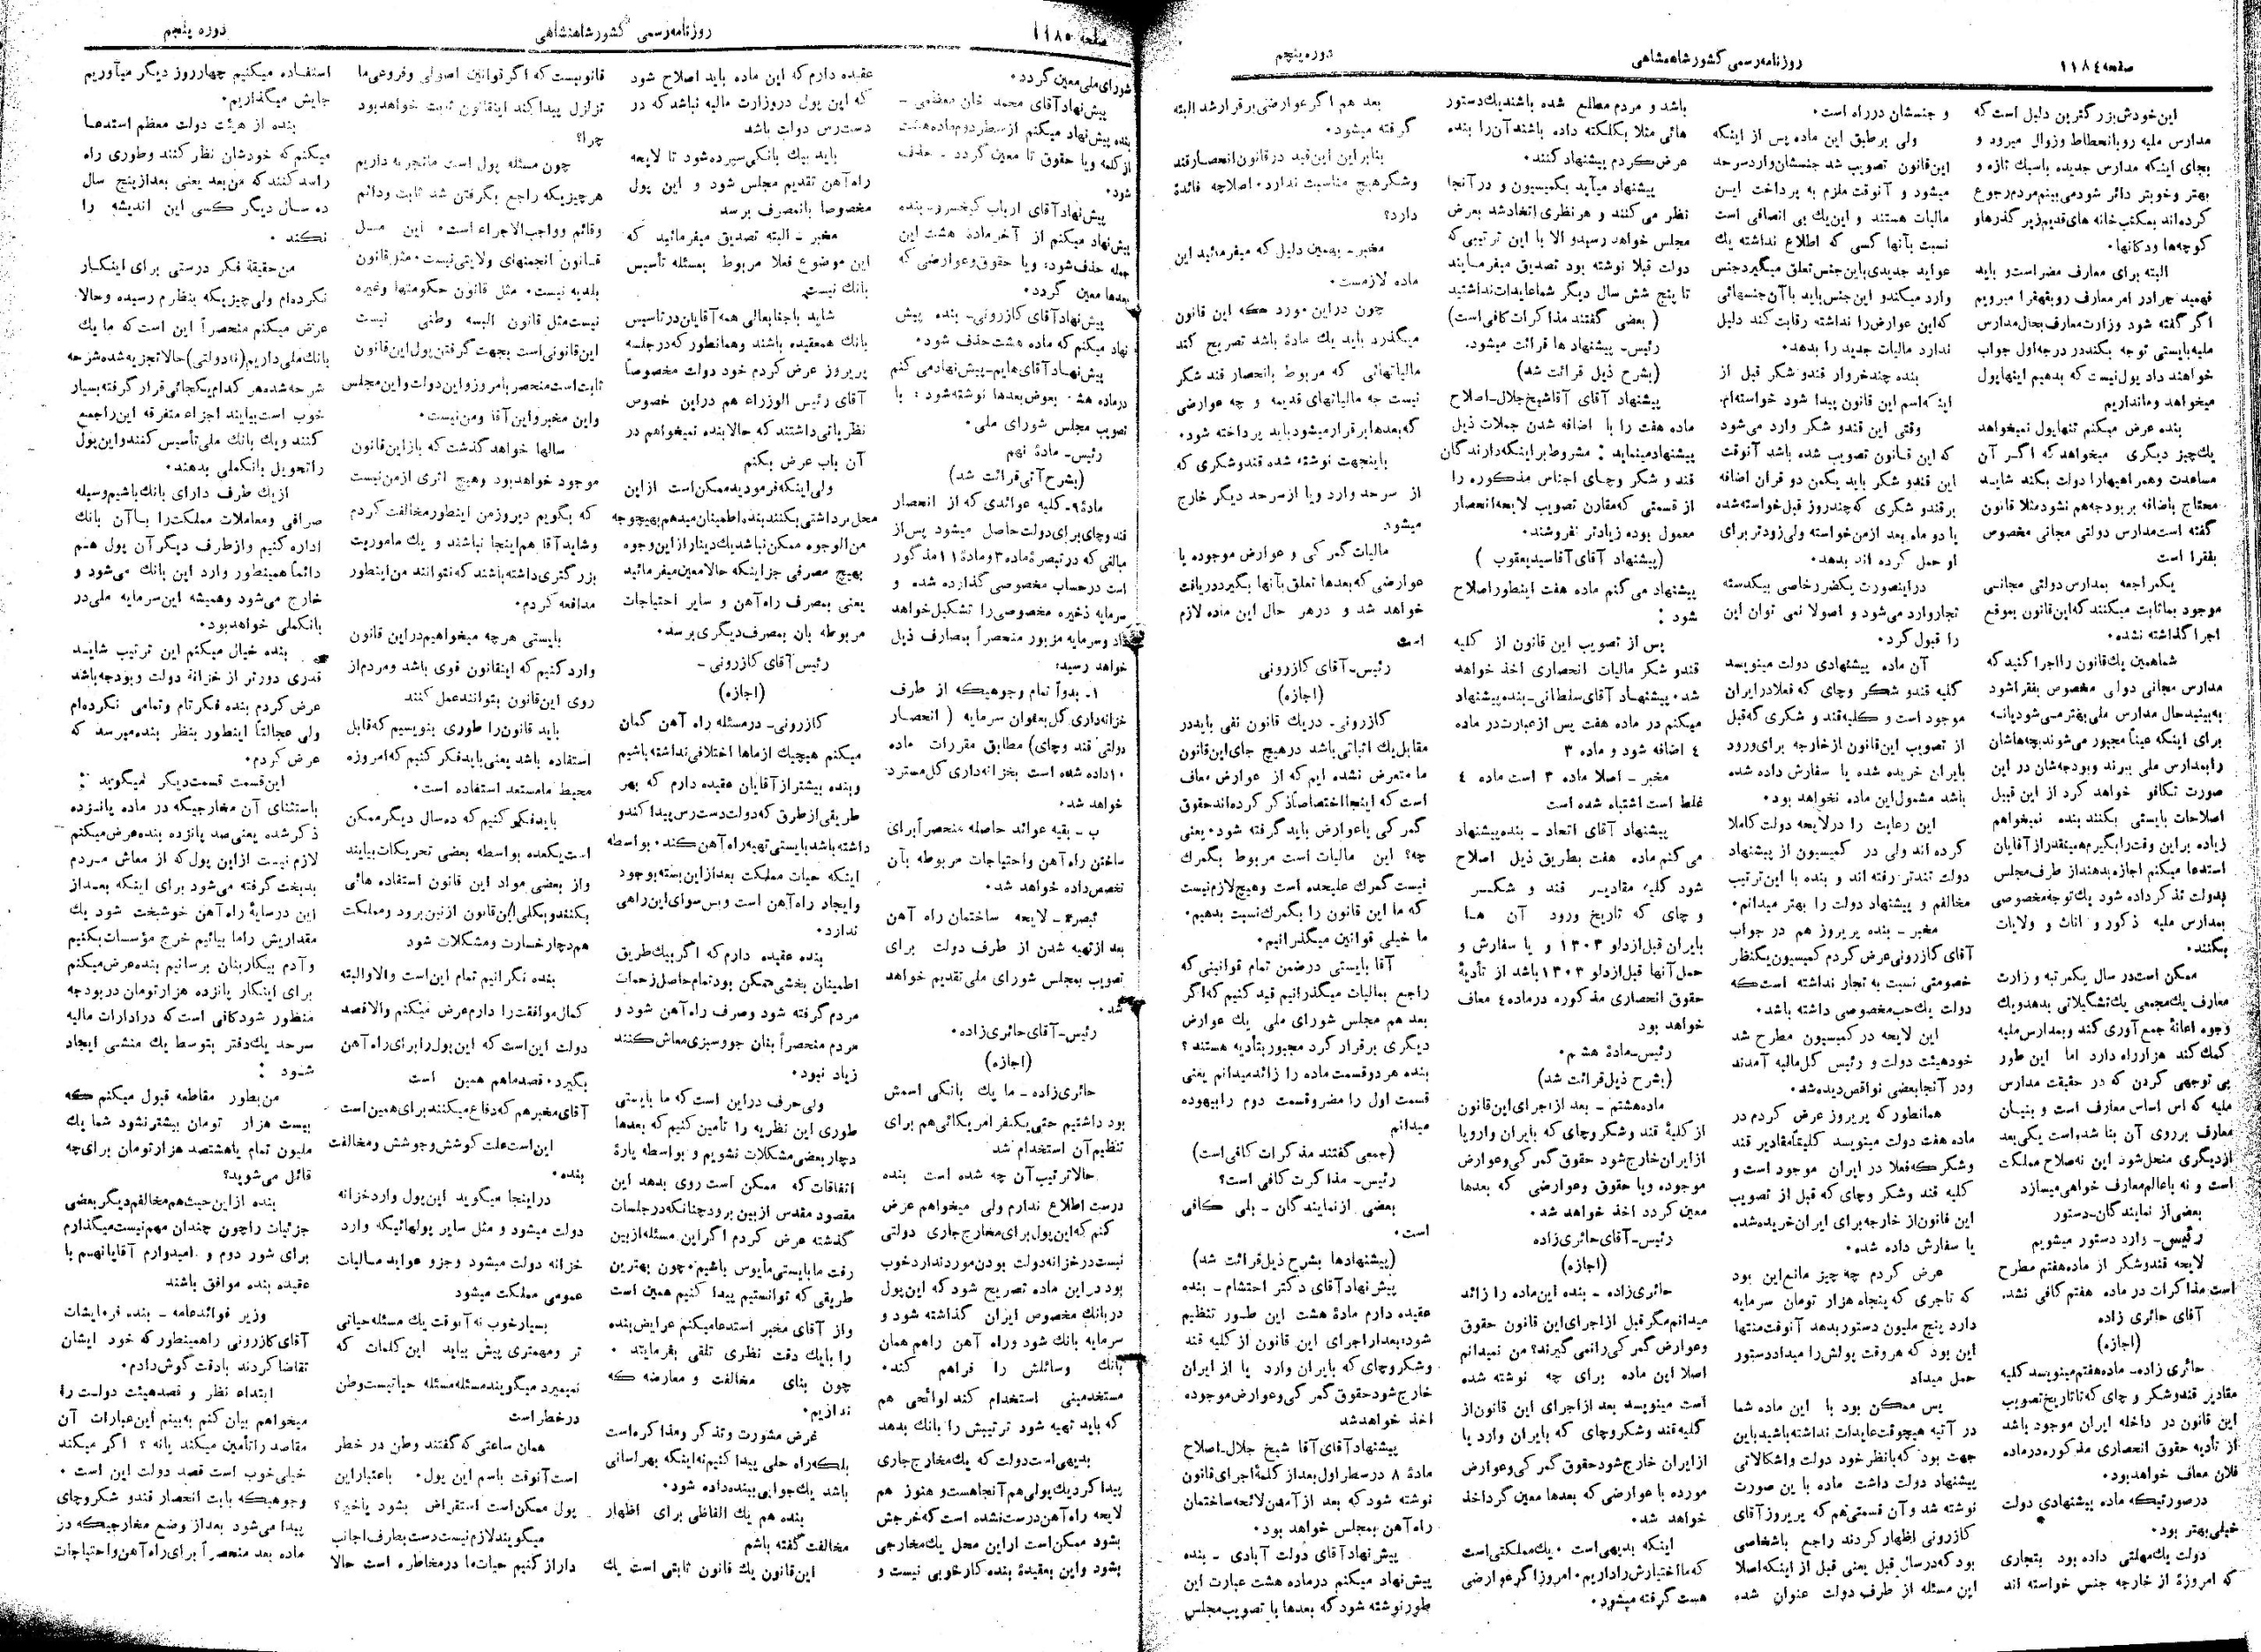 صفحه ۱۱۸٤
روزنامه‌رسمی کشورشاهنشاهی
دوره پنجم
این‌خودش‌بزرگترین دلیل است که
مدارس ملیه روبانحطاط وزوال میرود و
بجای اینکه مدارس جدیده باسبك تازه و
بهتر وخوبتر دائر شودمی‌بینم‌مردم‌رجوع
کرده‌اند بمکتب‌خانه های‌قدیم‌زیر گذرهاو
کوچه‌ها ودکانها.
البته برای معارف مضراست‌و باید
فهمید چرادر امرمعارف روبقهقرا میرویم
اگر گفته شود وزارت‌معارف‌بحال‌مدارس
ملیه‌بایستی توجه بکنددر درجه‌اول جواب
خواهند داد پول‌نیست که بدهیم اینهاپول
میخواهد ومانداریم
بنده عرض میکنم تنهاپول نمیخواهد
یك‌چیز دیگری میخواهدکه اگر آن
مساعدت وهمراهیهارا دولت بکند شاید
محتاج باضافه بربودجه‌هم نشودمثلا قانون
گفته است‌مدارس دولتی مجانی مخصوص
بفقرا است
یکمراجعه بمدارس دولتی مجانی
موجود بماثابت میکندکه‌این‌قانون بموقع
اجراگذاشته نشده.
شماهمین یك‌قانون رااجراکنید که
مدارس مجانی دولی مخصوص بفقراشود
به‌بینیدحال مدارس ملی‌بهترمی‌شودیانه
برای اینکه عیناً مجبور می‌شوندبچه‌هاشان
رابمدارس ملی ببرند وبودجه‌شان در این
صورت تکافو خواهد کرد از این قبیل
اصلاحات بایستی بکنند بنده نمیخواهم
زیاده براین وقت‌رابگیرم‌همینقدرازآقایان
استدعا میکنم اجازه‌بدهنداز طرف‌مجلس
بدولت تذکر داده شود یك‌توجه‌مخصوصی
بمدارس ملیه ذکور و اناث و ولایات
بکنند.
ممکن است‌در سال یکمرتبه وزارت
معارف یك‌مجمعی یك‌تشکیلاتی بدهدویك
وجوه اعانهٔ جمع‌آوری کند وبمدارس‌ملیه
کمك کند هزارراه دارد اما این طور
بی توجهی کردن که در حقیقت مدارس
ملیه که اس اساس معارف است و بنیان
معارف برروی آن بنا شده‌است یکی‌بعد
ازدیگری منحل‌شود این نه‌صلاح مملکت
است و نه باعالم‌معارف خواهی‌میسازد
بعضی‌از نمایندگان-دستور
رئیس- وارد دستور میشویم
لایحه قندوشکر از ماده‌هفتم مطرح
است‌مذاکرات در ماده هفتم کافی نشد.
آقای حائری زاده
(اجازه)
حائری زاده- ماده‌هفتم‌مینویسد کلیه
مقادیر قندوشکر و چای که‌تاتاریخ‌تصویب
این قانون در داخله ایران موجود باشد
از تأدیه حقوق انحصاری مذکوره‌درماده
فلان معاف خواهدبود.
درصورتیکه ماده پیشنهادی دولت
خیلی‌بهتر بود.
دولت یك‌مهلتی داده‌بود بتجاری
که امروزهٔ از خارجه جنس خواسته اند
و جنسشان درراه است.
ولی برطبق این ماده پس از اینکه
این‌قانون تصویب شد جنسشان‌واردسرحد
میشود و آنوقت ملزم به پرداخت این
مالیات هستند و این‌یك بی انصافی است
نسبت بآنها کسی که اطلاع نداشته یك
عواید جدیدی‌باین‌جنس‌تعلق میگیردجنس
وارد میکندو این‌جنس‌باید باآن‌جنسهائی
که‌این عوارض‌را نداشته رقابت‌کند دلیل
ندارد مالیات جدید را بدهد.
بنده چندخروار قندو شکر قبل از
اینکه‌اسم این قانون پیدا شود خواسته‌ام.
وقتی این قندو شکر وارد می‌شود
که این قانون تصویب شده باشد آنوقت
این قندو شکر باید یکمن دو قران اضافه
برقندو شکری که‌چندروز قبل‌خواسته‌شده
یا دو ماه بعد ازمن‌خواسته ولی‌زودتربرای
او حمل کرده اند بدهد.
دراینصورت یکضررخاصی بیکدسته
تجاروارد می‌شود و اصولا نمی توان این
را قبول کرد.
آن ماده پیشنهادی دولت مینویسد
کلیه قندو شکر وچای که فعلادرایران
موجود است و کلیه‌قند و شکری که‌قبل
از تصویب این‌قانون ازخارجه برای‌ورود
بایران خریده شده یا سفارش داده شده
باشد مشمول‌این ماده نخواهد بود.
این رعایت را درلایحه دولت کاملا
کرده اند ولی در کمیسیون از پیشنهاد
دولت تندتر رفته اند و بنده با این‌ترتیب
مخالفم و پیشنهاد دولت را بهتر میدانم.
مخبر- بنده پریروز هم در جواب
آقای کازرونی‌عرض کردم کمیسیون‌یکنظر
خصومتی نسبت به تجار نداشته است‌که
دولت یك‌حب‌مخصوصی داشته باشد.
این لایحه در کمیسیون مطرح شد
خودهیئت دولت و رئیس کل‌مالیه آمدند
ودر آنجابعضی نواقص‌دیده‌شد.
همانطورکه پریروز عرض کردم در
ماده هفت دولت مینویسد کلیتاًمقادیر قند
وشکرکه‌فعلا در ایران موجود است و
کلیه قند وشکر وچای که قبل از تصویب
این قانون‌از خارجه‌برای ایران‌خریده‌شده
یا سفارش داده شده.
عرض کردم چه چیز مانع‌این بود
که تاجری که‌پنجاه هزار تومان سرمایه
دارد پنج ملیون دستوربدهد آنوقت‌منتها
این بود که هروقت پولش‌را میداددستور
حمل میداد
پس ممکن بود با این ماده شما
در آتیه هیچوقت‌عایدات نداشته‌باشیدباین
جهت بود که‌بانظر خود دولت واشکالاتی
پیشنهاد دولت داشت ماده با ین صورت
نوشته شد وآن قسمتی‌هم که پریروزآقای
کازرونی اظهارکردند راجع باشخاصی
بودکه‌درسال‌قبل یعنی قبل از اینکه‌اصلا
این مسئله از طرف دولت عنوان شده
باشد و مردم مطلع شده باشندیك‌دستور
هائی مثلا بکلکته داده باشند آن‌را بنده
عرض‌کردم پیشنهاد کنند.
پیشنهاد میآید بکمیسیون و درآنجا
نظر می‌کنند و هرنظری اتخاذشد بعرض
مجلس خواهد رسیدو الا با این ترتیبی‌که
دولت قبلا نوشته بود تصدیق میفرمایند
تا پنج شش سال دیگر شماعایدات‌نداشتید
( بعضی گفتند مذاکرات‌کافی‌است)
رئیس- پیشنهاد ها قرائت میشود.
(بشرح ذیل قرائت شد)
پیشنهاد آقای آقاشیخ‌جلال-اصلاح
ماده هفت را با اضافه شدن جملات ذیل
پیشنهادمینماید : مشروط‌براینکه‌دارندگان
قند و شکر وچای اجناس مذکوره را
از قسمتی که‌مقارن تصویب لایحه‌انحصار
معمول بوده زیادتر نفروشند.
(پیشنهاد آقای‌آقاسیدیعقوب )
پیشنهاد می کنم ماده هفت اینطوراصلاح
شود :
پس از تصویب این قانون از کلیه
قندو شکر مالیات انحصاری اخذ خواهد
شد.پیشنهاد آقای‌سلطانی-بنده‌پیشنهاد
میکنم در ماده هفت پس ازعبارت‌در ماده
٤ اضافه شود و ماده ۳
مخبر - اصلا ماده ۳ است ماده ٤
غلط است اشتباه شده است
پیشنهاد آقای اتحاد - بنده‌پیشنهاد
می‌کنم ماده هفت بطریق ذیل اصلاح
شود کلیه مقادیر قند و شکر
و چای که تاریخ ورود آن ها
بایران قبل‌ازدلو ۱۳۰۳ و یا سفارش و
حمل‌آنها قبل‌ازدلو ۱۳۰۳باشد از تأدیهٔ
حقوق انحصاری مذکوره درماده٤ معاف
خواهد بود
رئیس-مادهٔ هشتم.
(بشرح ذیل‌قرائت شد)
ماده‌هشتم - بعد ازاجرای‌این‌قانون
از کلیهٔ قند وشکروچای که بایران واردویا
ازایران خارج‌شود حقوق گمرکی‌وعوارض
موجوده ویا حقوق وعوارضی که بعدها
معین گردد اخذ خواهد شد.
رئیس-آقای‌حائری‌زاده
(اجازه)
حائری‌زاده - بنده این‌ماده را زائد
میدانم‌مگرقبل ازاجرای‌این قانون حقوق
وعوارض گمرکی‌رانمی گیرند؟ من نمیدانم
اصلا این ماده برای چه نوشته شده
است مینویسد بعد ازاجرای این قانون‌از
کلیه‌قند وشکروچای که بایران وارد یا
ازایران خارج‌شودحقوق گمرکی‌وعوارض
مورده با عوارضی که بعدها معین گرداخذ
خواهد شد.
اینکه بدیهی‌است .یك‌مملکتی‌است
که‌مااختیارش‌راداریم.امروزاگرعوارضی
هست گرفته میشود.
بعد هم اگرعوارضی‌برقرارشد البته
گرفته میشود.
بنابراین این‌قید درقانون‌انحصارقند
وشکرهیچ مناسبت ندارد.اصلاچه فائدهٔ
دارد؟
مخبر- بهمین دلیل که میفرمائید این
ماده لازمست.
چون دراین مورد که این قانون
میگذرد باید یك مادهٔ باشد تصریح کند
مالیاتهائی که مربوط بانحصار قندشکر
نیست چه مالیاتهای قدیمه و چه عوارضی
که‌بعدهابرقرارمیشودباید پرداخته شود.
باینجهت نوشته شده قندوشکری که
از سرحد وارد ویا ازسرحد دیگر خارج
میشود
مالیات گمرکی و عوارض موجوده یا
عوارضی که‌بعدها تعلق بآنها بگیرددریافت
خواهد شد و درهر حال این ماده لازم
است
رئیس-آقای کازرونی
(اجازه)
کازرونی- دریك قانون نفی بایددر
مقابل‌یك اثباتی‌باشد درهیچ جای‌این‌قانون
ما متعرض نشده ایم‌که از عوارض معاف
است که اینجااختصاصاًذکر کرده‌اندحقوق
گمرکی یاعوارض باید گرفته شود.یعنی
چه؟ این مالیات است مربوط بگمرك
نیست گمرك علیحده است وهیچ‌لازم‌نیست
که ما این قانون را بگمرك‌نسبت بدهیم.
ما خیلی قوانین میگذرانیم.
آقا بایستی درضمن تمام قوانینی که
راجع بمالیات میگذرانیم قید کنیم که‌اگر
بعد هم مجلس شورای ملی یك عوارض
دیگری برقرارکرد مجبوربتأدیه هستند ؟
بنده هردوقسمت ماده را زائدمیدانم یعنی
قسمت اول را مضروقسمت دوم رابیهوده
میدانم
(جمعی گفتند مذکرات کافی‌است)
رئیس- مذاکرت کافی است؟
بعضی ازنمایندگان - بلی کافی
است.
(پیشنهادها بشرح ذیل‌قرائت شد)
پیش‌نهادآقای دکتر احتشام - بنده
عقیده دارم مادهٔ هشت این طور تنظیم
شود؛بعدازاجرای این قانون از کلیه قند
وشکروچای که بایران وارد یا از ایران
خارج‌شودحقوق‌گمرکی‌وعوارض‌موجوده
اخذ خواهدشد
پیشنهادآقای‌آقا شیخ جلال-اصلاح
مادهٔ ۸ درسطراول‌بعداز کلمهٔ‌اجرای‌قانون
نوشته شودکه بعد ازآمدن‌لائحه‌ساختمان
راه‌آهن بمجلس خواهد بود.
پیش‌نهادآقای دولت آبادی - بنده
پیش‌نهاد میکنم درماده هشت عبارت این
طورنوشته شودکه بعدها با تصویب‌مجلس
صفحه ۱۱۸۵
روزنامه‌رسمی کشورشاهنشاهی
دوره پنجم
شورای‌ملی‌معین‌گردد.
پیش‌نهادآقای محمد خان معظمی -
بنده پیش‌نهاد میکنم ازسطردوم‌ماده‌هشت
ازکلمه ویا حقوق تا معین گردد - حذف
شود.
پیش‌نهادآقای ارباب کیخسرو-بنده
پیش‌نهاد میکنم از آخرمادهٔ هشت این
جمله حذف‌شود؛ ویا حقوق‌وعوارضی که
بعدها معین گردد.
پیش‌نهادآقای کازرونی- بنده پیش
نهاد میکنم که ماده هشت‌حذف شود.
پیش‌نهادآقای‌هایم-پیش‌نهادمی‌کنم
درماده هشت بعوض‌بعدها نوشته‌شود : با
تصویب مجلس شورای ملی.
رئیس- مادهٔ نهم
(بشرح‌آتی‌قرائت شد)
مادهٔ۹- کلیه عوائدی که از انحصار
قند وچای‌برای‌دولت‌حاصل میشود پس‌از
مبالغی که در تبصرهٔ‌ماده۳ومادهٔ۱۱مذکور
است درحساب مخصوصی گذارده شده و
سرمایه ذخیره مخصوصی‌را تشکیل‌خواهد
داد وسرمایه مزبور منحصراً بمصارف ذیل
خواهد رسید؛
۱- بدواً تمام وجوهیکه از طرف
خزانه‌داری کل‌بعنوان سرمایه ( انحصار
دولتی قند وچای) مطابق مقررات ماده
۱۰داده شده است بخزانه‌داری کل‌مسترد
خواهد شد.
ب - بقیه عوائد حاصله منحصراًبرای
ساختن راه‌آهن واحتیاجات مربوطه بآن
تخصص‌داده خواهد شد.
تبصره- لایحه ساختمان راه آهن
بعد ازتهیه شدن از طرف دولت برای
تصویب بمجلس شورای ملی تقدیم خواهد
شد.
رئیس-آقای‌حائری‌زاده.
(اجازه)
حائری‌زاده - ما یك بانکی اسمش
بود داشتیم حتی‌یکنفر امریکائی‌هم برای
تنظیم‌آن استخدام شد
حالاترتیب‌آن چه شده است بنده
درست اطلاع ندارم ولی میخواهم عرض
کنم که‌این‌پول‌برای‌مخارج‌جاری دولتی
نیست‌درخزانه‌دولت بودن‌موردنداردخوب
بوددراین ماده تصریح شودکه این‌پول
دربانك مخصوص ایران گذاشته شود و
سرمایه بانك شود وراه آهن راهم‌همان
بانك وسائلش را فراهم کند.
مستخدمینی استخدام کندلوائحی هم
که باید تهیه شود ترتیبش را بانك بدهد
بدیهی‌است‌دولت که یك‌مخارج‌جاری
پیدا کرد یك‌پولی‌هم‌آنجاهست‌و هنوز هم
لایحه راه‌آهن‌درست‌نشده است‌که‌خرجش
بشود ممکن‌است ازاین محل یك‌مخارجی
بشود واین بعقیدهٔ بنده کارخوبی نیست و
عقیده دارم‌که این ماده باید اصلاح شود
که این پول دروزارت مالیه نباشدکه در
دست‌رس دولت باشد
باید بیك بانکی‌سپرده‌شود تا لایحه
راه‌آهن تقدیم مجلس شود و این پول
مخصوصا بانمصرف برسد
مخبر - البته تصدیق میفرمائید که
این موضوع فعلا مربوط بمسئله تأسیس
بانك نیست.
شاید باجنابعالی همه‌آقایان‌درتاسیس
بانك همعقیده باشند وهمانطورکه‌درجلسه
پریروز عرض کردم خود دولت مخصوصاً
آقای رئیس الوزراء هم دراین خصوص
نظریاتی‌داشتندکه حالابنده نمیخواهم در
آن باب عرض بکنم
ولی‌اینکه‌فرمودیدممکن‌است ازاین
محل‌برداشتی‌بکنندبنده‌اطمینان‌میدهم‌بهیچوجه
من‌الوجوه ممکن‌نباشدیك‌دینارازاین‌وجوه
بهیچ مصرفی جزاینکه حالامعین‌میفرمائید
یعنی بمصرف راه‌آهن و سایر احتیاجات
مربوطه بان بمصرف‌دیگری‌برسد.
رئیس آقای کازرونی -
(اجازه)
کازرونی- درمسئله راه آهن گمان
میکنم هیچیك ازماها اختلافی‌نداشته‌باشیم
وبنده بیشترازآقایان عقیده دارم که بهر
طریقی‌ازطرق که‌دولت‌دست‌رس‌پیداکندو
داشته‌باشدبایستی‌تهیه‌راه‌آهن‌کند.بواسطه
اینکه حیات مملکت بعدازاین‌بسته‌بوجود
وایجاد راه‌آهن است وبس‌سوای‌این‌راهی
ندارد.
بنده عقیده دارم‌که اگربیك‌طریق
اطمینان بخشی‌ممکن بودتمام‌حاصل‌زحمات
مردم‌گرفته شود وصرف راه‌آهن شود و
مردم منحصراً بنان جووسبزی‌معاش‌کنند
زیاد نبود.
ولی‌حرف دراین است که ما بایستی
طوری این نظریه را تأمین کنیم که بعدها
دچاربعضی‌مشکلات نشویم و بواسطه پارهٔ
اتفاقات‌که ممکن است روی بدهد این
مقصود مقدس ازبین برودچنانکه‌درجلسات
گذشته عرض کردم اگراین مسئله‌ازبین
رفت مابایستی‌مأیوس باشیم.چون بهترین
طریقی که توانستیم پیدا کنیم همین است
واز آقای مخبر استدعامیکنم عرایض‌بنده
را بایك دقت نظری تلقی بفرمایند .
چون بنای مخالفت و معارضه که
نداریم.
غرض مشورت وتذکر ومذاکره‌است
بلکه‌راه حلی پیدا کنیم‌نه‌اینکه بهرلسانی
باشد یك‌جوابی‌ببنده‌داده شود.
بنده هم یك الفاظی برای اظهار
مخالفت گفته باشم
این‌قانون یك قانون ثابتی است یك
قانونیست که اگرقوانین اصولی وفروعی‌ما
تزلزل پیداکند اینقانون ثابت خواهدبود
چرا؟
چون مسئله پول است ماتجربه داریم
هرچیزیکه راجع بگرفتن شد ثابت ودائم
وقائم وواجب‌الاجراء است. این مسل
قانون انجمنهای ولایتی‌نیست.مثل‌قانون
بلدیه نیست. مثل قانون حکومتها وغیره
نیست‌مثل قانون البسه وطنی نیست
این‌قانونی‌است بجهت گرفتن‌پول‌این‌قانون
ثابت‌است‌منحصر باامروزو این‌دولت واین‌مجلس
واین مخبرو‌این‌آقا ومن‌نیست.
سالها خواهد گذشت‌که بازاین‌قانون
موجود خواهدبود وهیچ اثری ازمن‌نیست
که بگویم دیروزمن اینطورمخالفت‌کردم
وشایدآقا هم‌اینجا نباشند و یك ماموریت
بزرگتری‌داشته‌باشندکه نتوانند من‌اینطور
مدافعه کردم.
بایستی هرچه میخواهیم‌دراین قانون
واردکنیم که اینقانون قوی باشد ومردم‌از
روی این‌قانون بتوانندعمل کنند
باید قانون‌را طوری بنویسیم که‌قابل
استفاده باشد یعنی بایدفکرکنیم که‌امروزه
محیط مامستعد استفاده است.
بایدفکر کنیم‌که ده‌سال دیگرممکن
است‌یکعده بواسطه بعضی تحریکات‌بیایند
واز بعضی مواد این قانون استفاده هائی
بکنندوبکلی‌این‌قانون ازبین‌برود ومملکت
هم‌دچارخسارت ومشکلات شود
بنده نگرانیم تمام این‌است والاوالبته
کمال‌موافقت‌را دارم‌عرض میکنم والاقصد
دولت این‌است که این‌پول‌رابرای‌راه‌آهن
بگیرد.قصدماهم همین است
آقای‌مخبرهم‌که‌دفاع‌میکنندبرای‌همین‌است
این‌است‌علت کوشش‌وجوشش ومخالفت
بنده.
دراینجا میگوید این‌پول واردخزانه
دولت میشود و مثل سایر پولهائیکه وارد
خزانه دولت میشود وجزو عواید مالیات
عمومی مملکت میشود
بسیارخوب نه‌آنوقت یك مسئله‌حیاتی
تر ومهمتری پیش بیاید این‌کلمات که
نمیمیرد میگویندمسئله‌مسئله حیاتیست‌وطن
درخطراست
همان ساعتی‌که‌گفتند وطن در خطر
است‌آنوقت باسم این پول. باعتباراین
پول ممکن‌است استقراض بشود یاخیر؟
میگویندلازم‌نیست‌دست‌بطرف‌اجانب
دارازکنیم حیات‌ما درمخاطره است حالا
استفاده میکنیم چهارروز دیگر میآوریم
جایش میگذاریم.
بنده از هیئت دولت معظم استدعا
میکنم‌که خودشان نظرکنند وطوری راه
راسدکنندکه من‌بعد یعنی بعدازپنج سال
ده سال دیگر کسی این اندیشه را
نکند .
من‌حقیقة فکر درستی برای اینکار
نکرده‌ام ولی‌چیزیکه بنظرم رسیده وحالا
عرض میکنم منحصراً این است‌که ما یك
بانك‌ملی‌داریم(نه‌دولتی)حالاتجزیه‌شده‌شرحه
شرحه‌شده‌هر کدام‌یکجائی‌قرارگرفته‌بسیار
خوب است‌بیایند اجزاء متفرقه این‌راجمع
کنند ویك بانك ملی‌تأسیس کنندو‌این‌پول
راتحویل بانکملی بدهند.
ازیك طرف دارای بانك‌باشیم‌وسیله
صرافی ومعاملات مملکت‌را باآن بانك
اداره کنیم وازطرف دیگرآن پول هم
دائماً همینطور وارد این بانك می‌شود و
خارج می‌شود وهمیشه این‌سرمایه ملی‌در
بانکملی خواهدبود.
بنده خیال میکنم این ترتیب شاید
قدری دورتر از خزانهٔ دولت وبودجه‌باشد
عرض کردم بنده فکرتام وتمامی نکرده‌ام
ولی عجالتاً اینطور بنظر بنده‌میرسد که
عرض کردم.
این‌قسمت قسمت‌دیگر میگوید :
باستثنای آن مخارجیکه در ماده پانزده
ذکرشده یعنی‌صد پانزده بنده‌عرض‌میکنم
لازم نیست ازاین پول‌که از معاش مردم
بدبخت گرفته می‌شود برای اینکه بعداز
این درسایهٔ راه‌آهن خوشبخت شود یك
مقداریش راما بیائیم خرج مؤسسات‌بکنیم
وآدم بیکاربنان برسانیم بنده‌عرض‌میکنم
برای اینکار پانزده هزارتومان دربودجه
منظور شودکافی است‌که درادارات مالیه
سرحد یك‌دفتر بتوسط یك منشی ایجاد
شود :
من‌بطور مقاطعه قبول میکنم که
بیست هزار تومان بیشترنشود شما یك
ملیون تمام یاهشتصد هزارتومان برای‌چه
قائل می‌شوید؟
بنده ازاین‌حیث‌هم‌مخالفم‌دیگربعضی
جزئیات راچون چندان مهم‌نیست‌میگذارم
برای شور دوم و امیدوارم آقایانهم با
عقیده بنده موافق باشند
وزیر فوائدعامه - بنده فرمایشات
آقای‌کازرونی راهمینطورکه خود ایشان
تقاضاکردند بادقت گوش‌دادم.
ابتداء نظر و قصدهیئت دولت را
میخواهم بیان کنم به‌بینم این‌عبارات آن
مقاصد راتأمین میکند یانه ؟ اگرمیکند
خیلی‌خوب است قصد دولت این است .
وجوهیکه بابت انحصار قندو شکروچای
پیدا می‌شود بعداز وضع مخارجیکه در
ماده بعد منحصراً برای‌راه‌آهن‌واحتیاجات